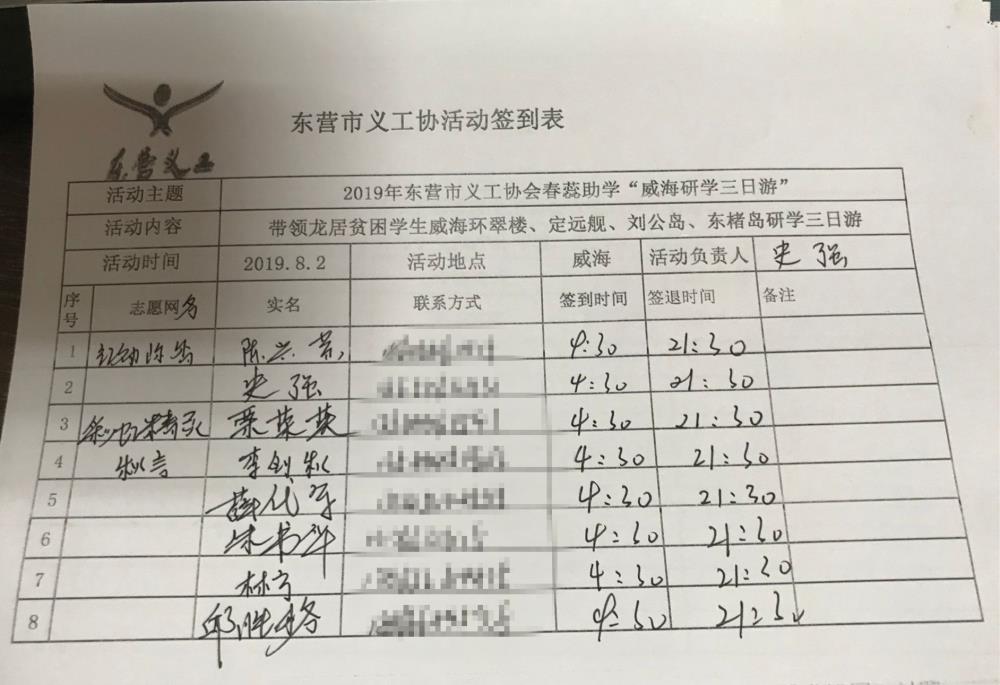 东营义工
东营市义工协活动签到表
活动主题 2019年东营市义工协会春蕊助学“威海研学三日游”
活动内容 带领龙居贫困学生威海环翠楼、定远舰、刘公岛、东楮岛研学三日游
活动时间 2019.8.2 活动地点 威海 活动负责人 史强
序号 志愿网名 实名 联系方式 签到时间 签退时间 备注
1 陈兴 4:30 21:30
2 史强 4:30 21:30
3 栗荣英 4:30 21:30
4 秋言 李剑秋 4:30 21:30
5 薛代 4:30 21:30
6 4:30 21:30
7 林宁 4:30 21:30
8 邱胜 4:30 21:30